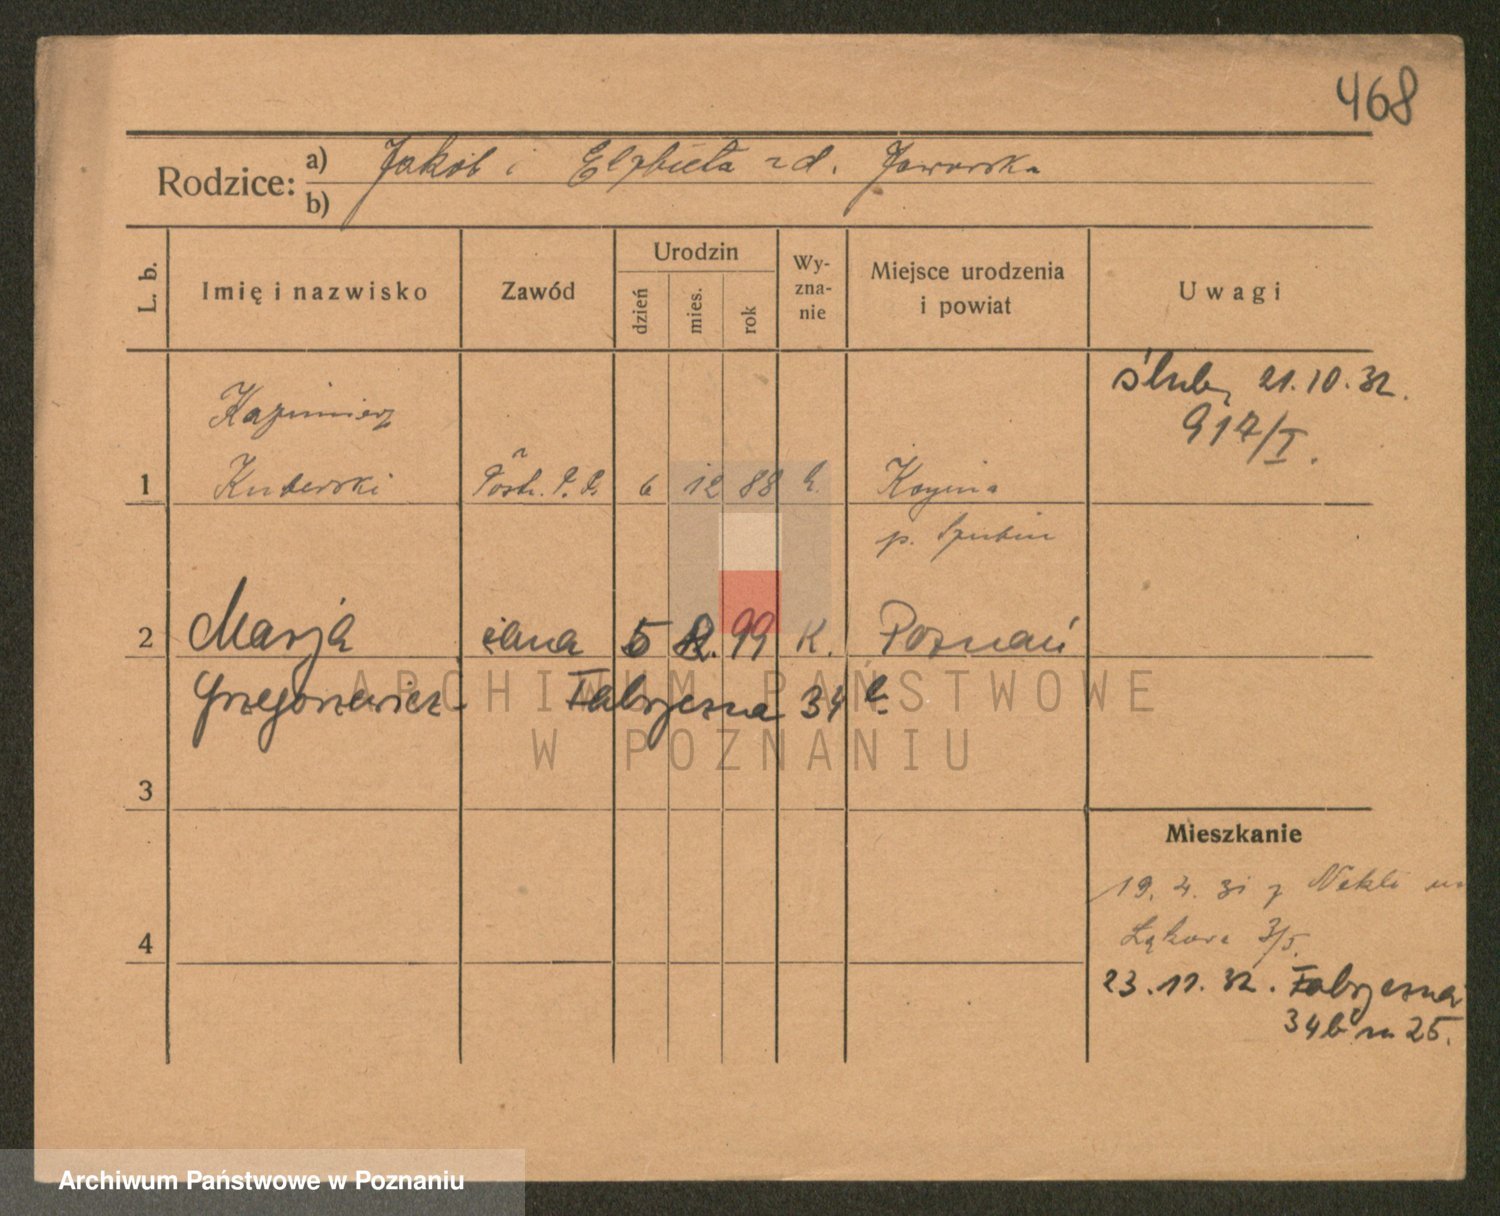 468
Rodzice: a) Jakób i Elżbieta zd. Jaworska
b)
L. b. Imię i nazwisko Zawód Urodzin dzień mies. rok Wy-zna-nie Miejsce urodzenia i powiat Uwagi
Ślub, 21.10.32.
917/I.
Kazimierz
1 Kuberski 6 12 88 Kcynia
p. Szubin
2 Marja żona 5 99 K. Poznań
Grzegorzewicz Fabryczna 34 b
3
Mieszkanie
19. 4. 31 z Nekli
4 Łąkowa 3/5
23.11.32. Fabryczna
34b m 25.
ARCHIWUM PAŃSTWOWE
W POZNANIU
Archiwum Państwowe w Poznaniu